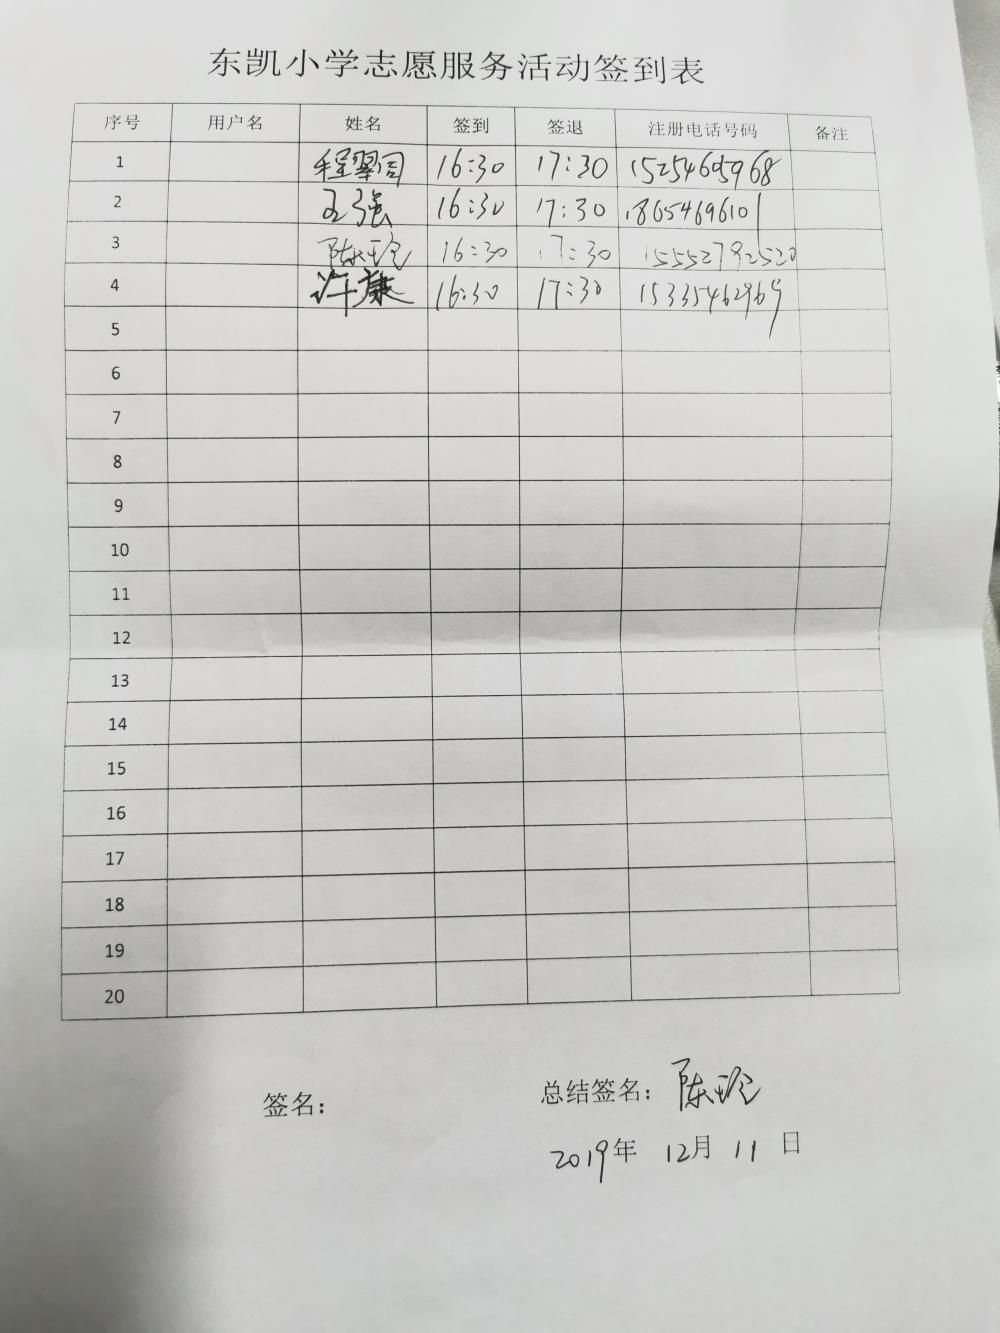 东凯小学志愿服务活动签到表
序号 用户名 姓名 签到 签退 注册电话号码 备注
1 程翠同 16:30 17:30 15254605968
2 王强 16:30 17:30 18654696101
3 陈玲 16:30 17:30 15552792520
4 许康 16:30 17:30 15335462969
5
6
7
8
9
10
11
12
13
14
15
16
17
18
19
20
签名： 总结签名：陈玲
2019年 12月 11日